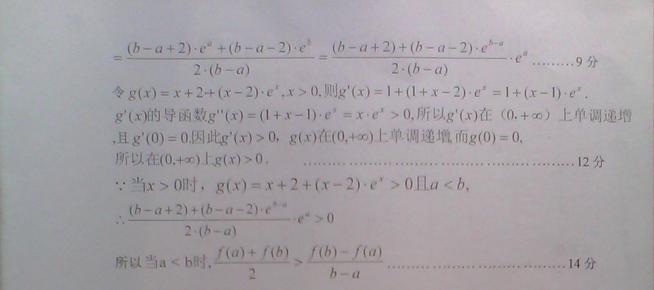 =\frac{(b-a+2)·e^a+(b-a-2)·e^b}{2·(b-a)}=\frac{(b-a+2)+(b-a-2)·e^{b-a}}{2·(b-a)}·e^a ………9分
令g(x)=x+2+(x-2)·e^x,x>0,则g'(x)=1+(1+x-2)·e^x=1+(x-1)·e^x.
g'(x)的导函数g''(x)=(1+x-1)·e^x=x·e^x>0,所以g'(x)在（0,+∞）上单调递增
,且g'(0)=0.因此g'(x)>0，g(x)在(0,+∞)上单调递增,而g(0)=0,
所以在(0,+∞)上g(x)>0. ……………………………………………12分
∵当x>0时，g(x)=x+2+(x-2)·e^x>0且a<b,
∴\frac{(b-a+2)+(b-a-2)·e^{b-a}}{2·(b-a)}·e^a>0
所以当a<b时,\frac{f(a)+f(b)}{2}>\frac{f(b)-f(a)}{b-a} ……………………………14分